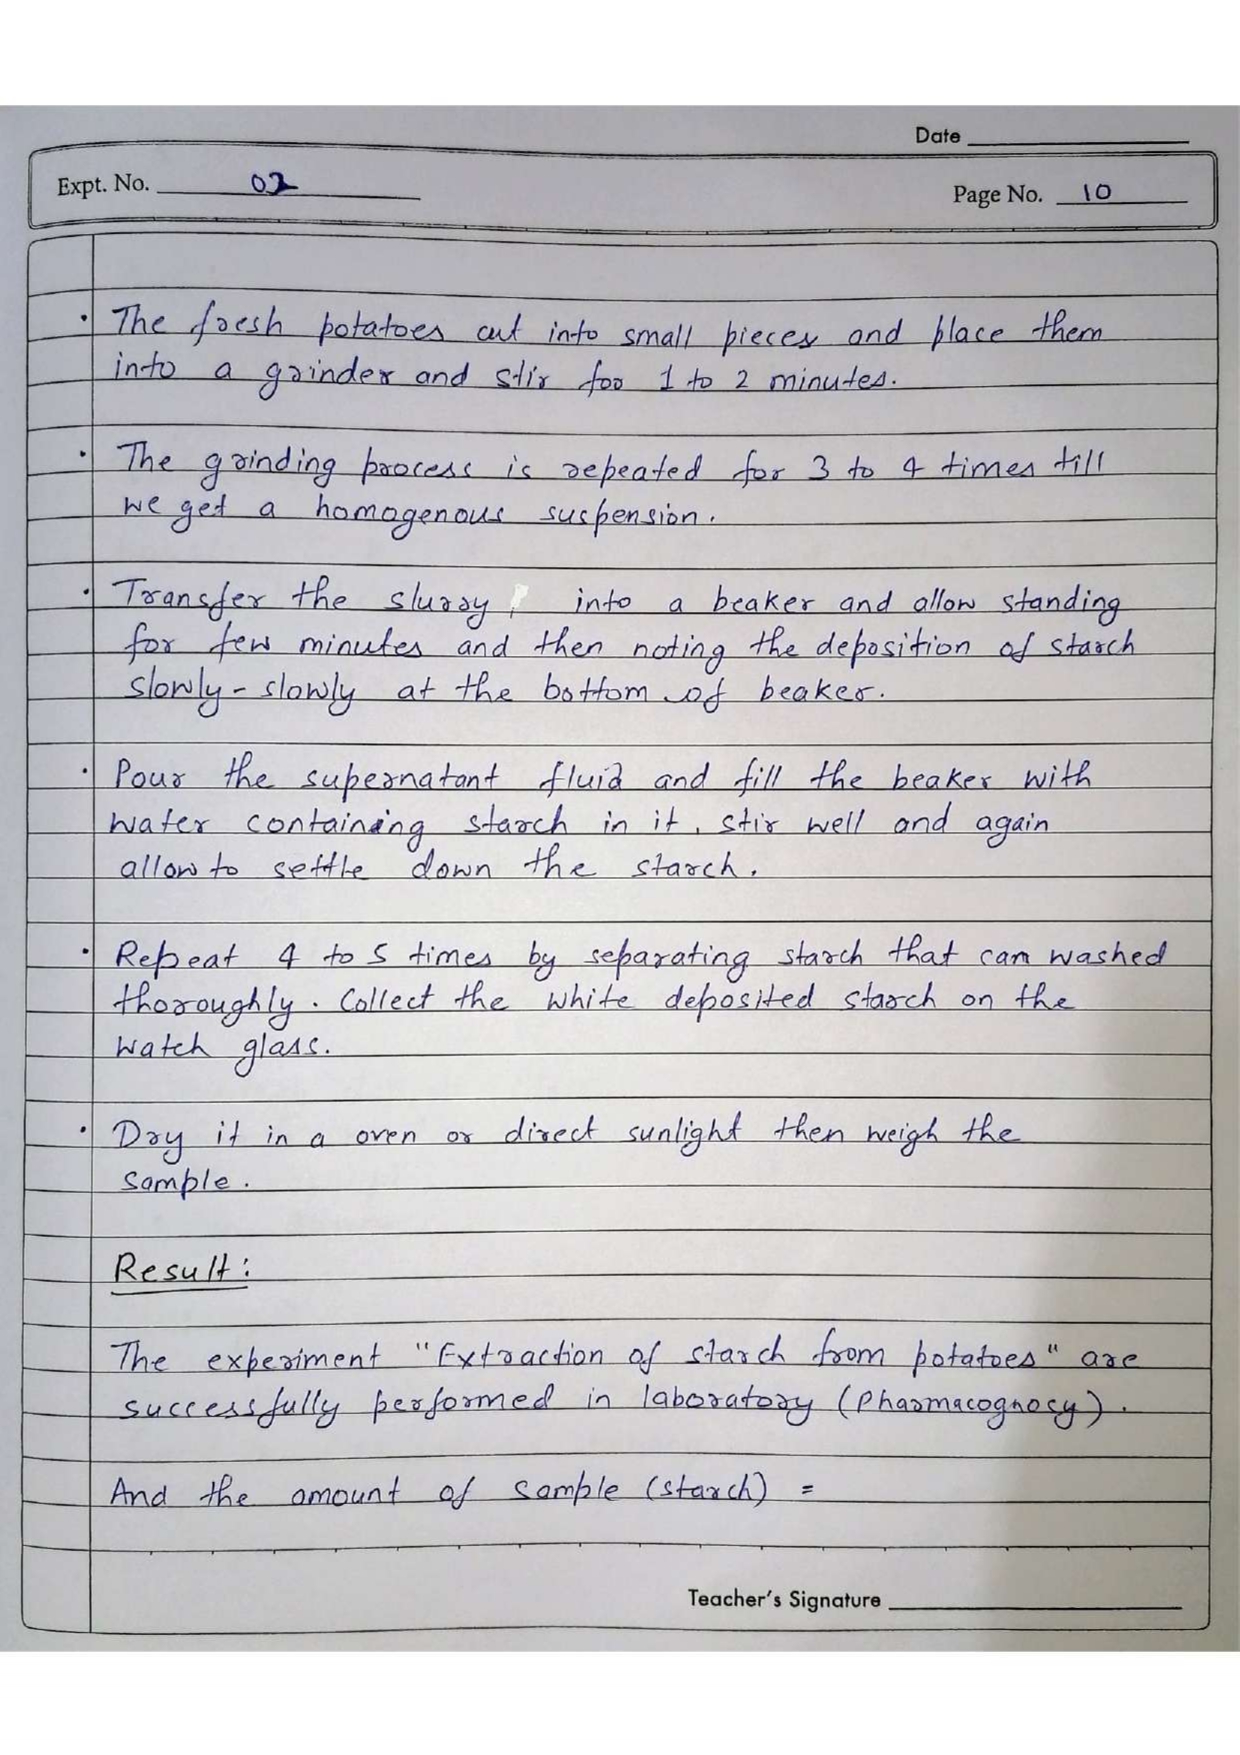 Date
Expt. No. 02
Page No. 10
· The fresh potatoes cut into small pieces and place them
into a grinder and stir for 1 to 2 minutes.
· The grinding process is repeated for 3 to 4 times till
we get a homogenous suspension.
· Transfer the slurry into a beaker and allow standing
for few minutes and then noting the deposition of starch
slowly-slowly at the bottom of beaker.
· Pour the supernatant fluid and fill the beaker with
water containing starch in it, stir well and again
allow to settle down the starch.
· Repeat 4 to 5 times by separating starch that can washed
thoroughly. Collect the white deposited starch on the
watch glass.
· Dry it in a oven or direct sunlight then weigh the
sample.
Result:
The experiment "Extraction of starch from potatoes" are
successfully performed in laboratory (Pharmacognosy).
And the amount of sample (starch) =
Teacher's Signature